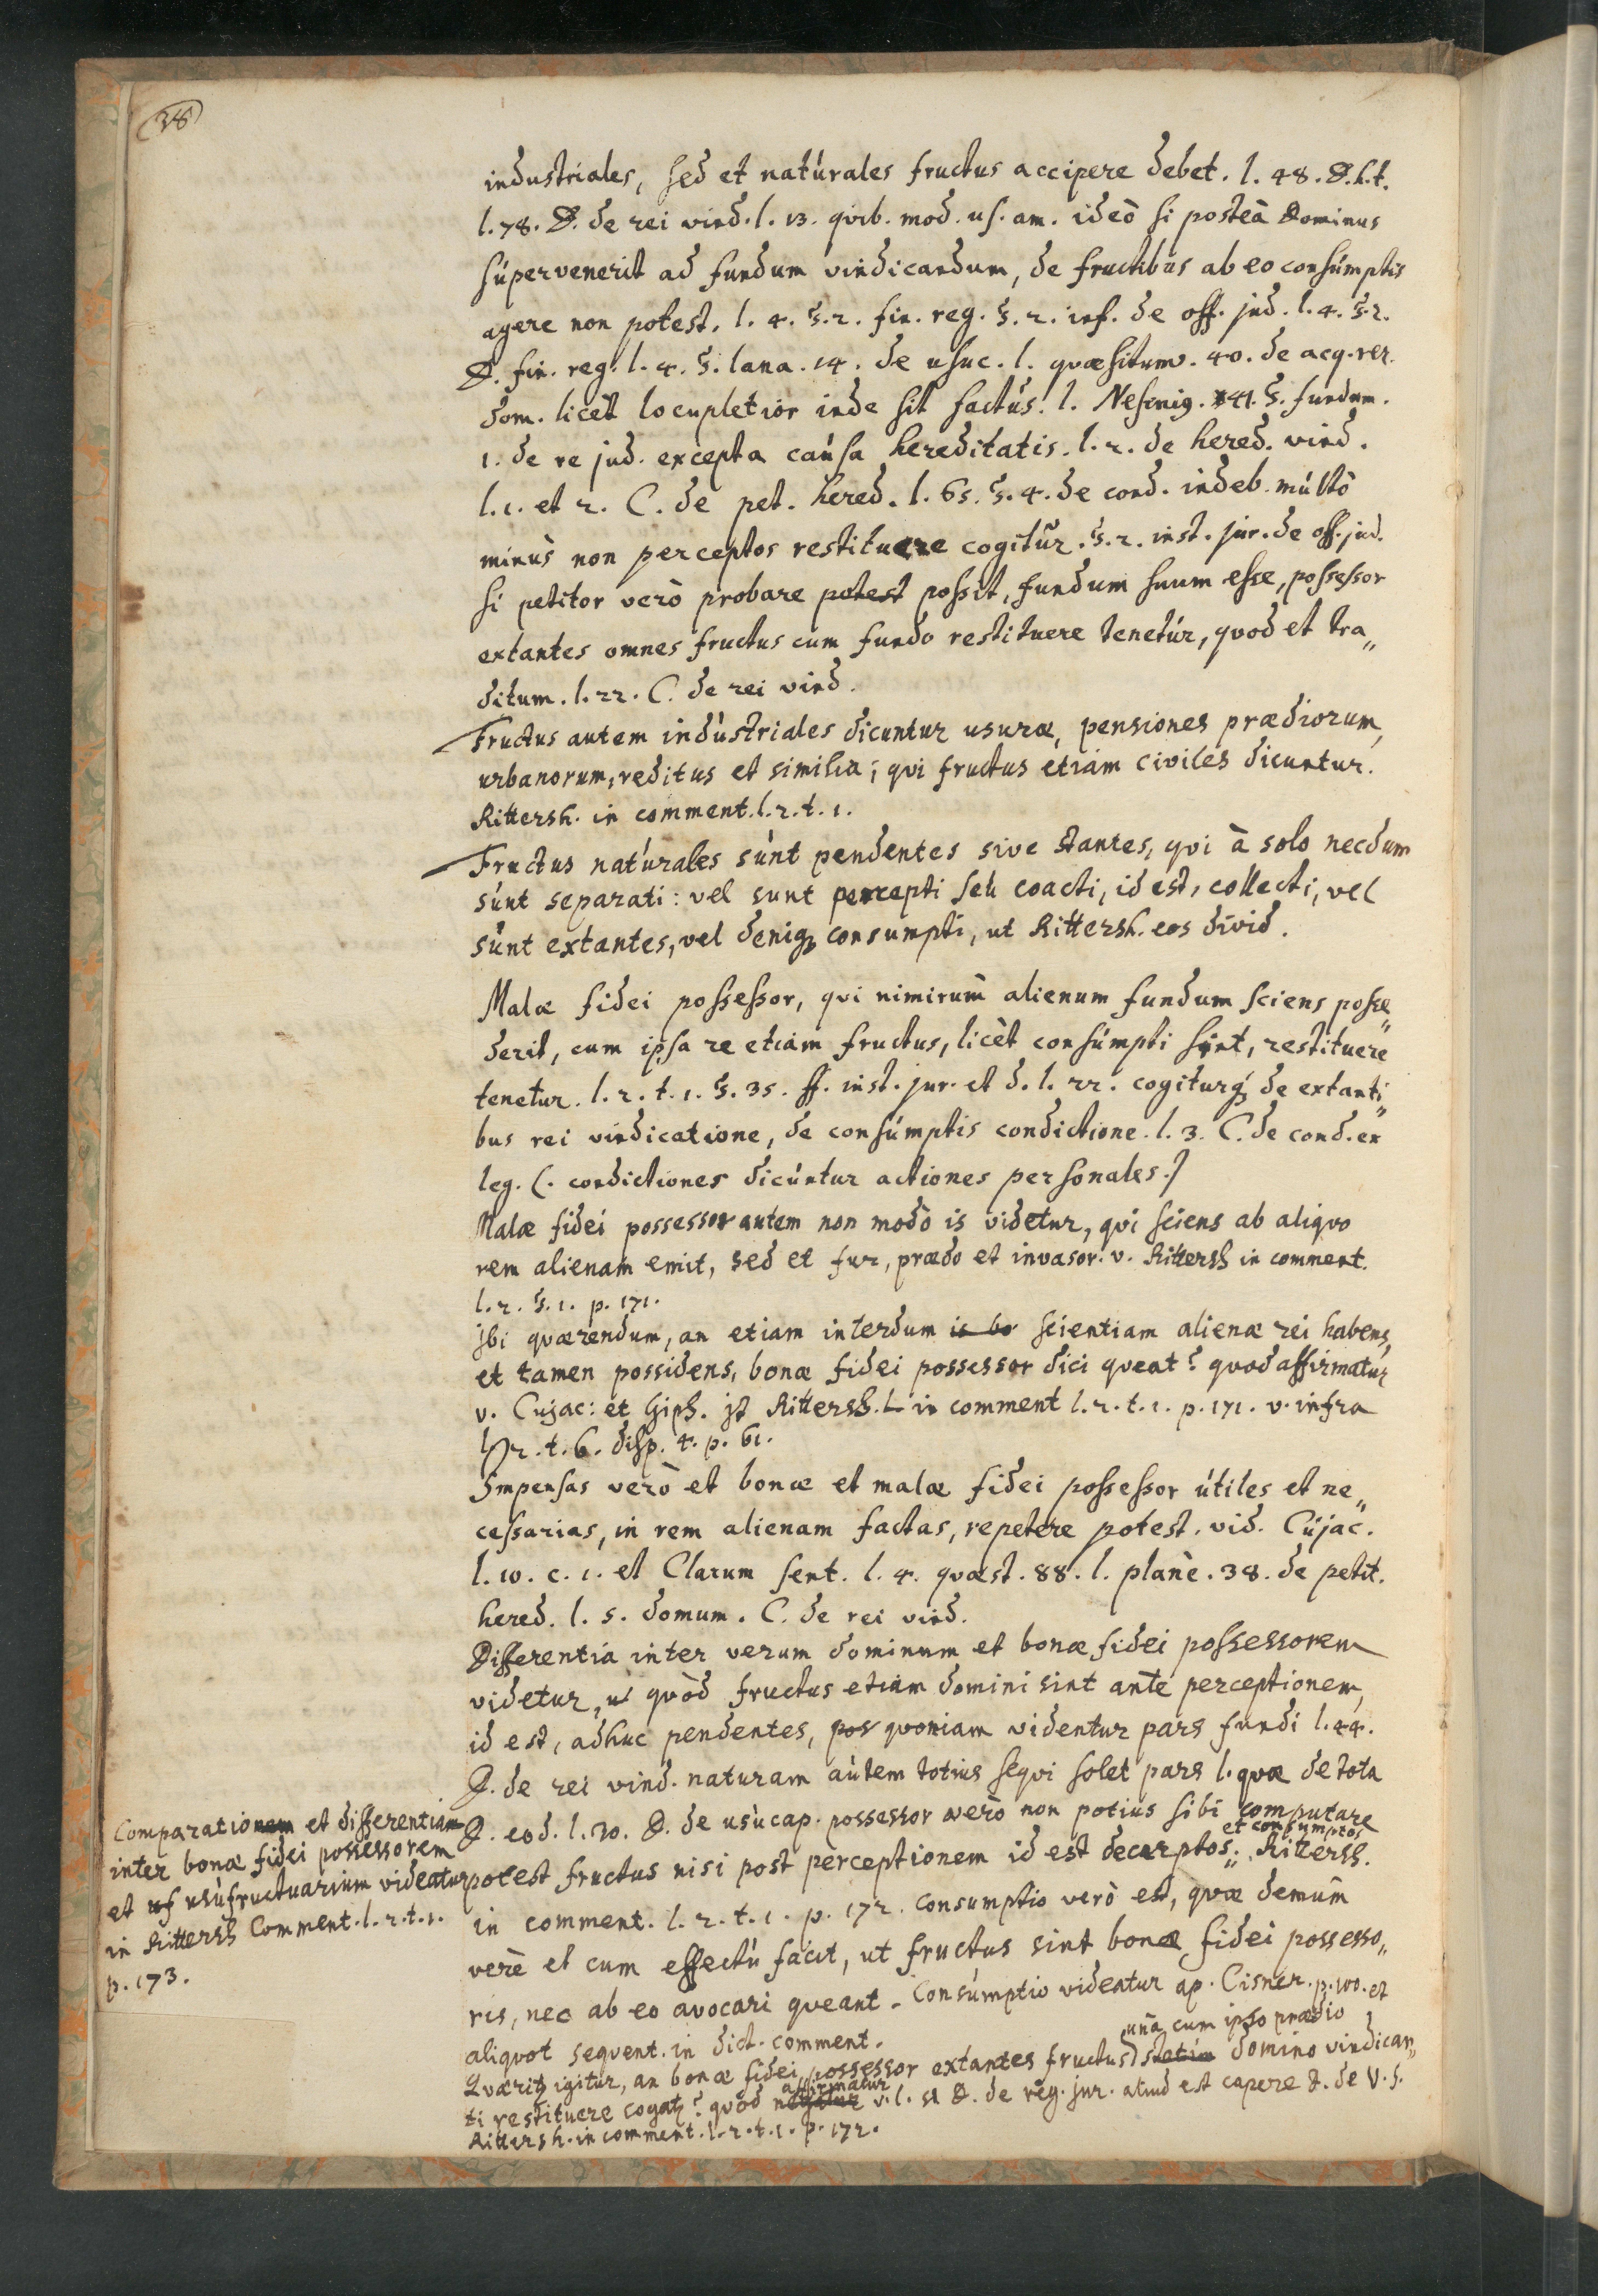 38
industriales, sed et natúrales fructus accipere debet. l. 48. D. h. t.
l. 78. D. de rei vind. l. 13. quib. mod. us. am. ideò si posteà Dominus
súpervenerit ad fundum vindicandum, de fructibus ab eo consúmptis
agere non potest. l. 4. §. 2. fin. reg. §. 2. inf. de off. jud. l. 4. §. 2.
D. fin. reg. l. 4. §. lana. 14. de usuc. l. quæsitum. 40. de acq. rer.
dom. licèt locupletior inde sit factús. l. 41. §. fundum.
1. de re jud. excepta caúsa hereditatis. l. 2. de hered. vind.
l. 1. et 2. C. de pet. hered. l. 65. §. 4. de cond. indeb. múltò
minùs non perceptos restituere cogitur. §. 2. inst. jur. de off. jud.
si petitor verò probare potest possit, fundum suum esse, possessor
extantes omnes fructus cum fundo restituere tenetúr, quod et tra„
ditum. l. 22. C. de rei vind.
Fructus autem indústriales dicuntur usuræ, pensiones prædiorum,
urbanorum, reditus et similia; qui fructus etiam civiles dicuntur.
Rittersh. in comment. l. 2. t. 1.
Fructus natúrales súnt pendentes sive stantes, qui à solo necdum
súnt separati: vel sunt percepti seu coacti, id est, collecti, vel
súnt extantes, vel deniq; consumpti, ut Rittersh. eos divid.
Malæ fidei possessor, qui nimirum alienum fundum sciens posse„
derit, cum ipsa re etiam fructus, licèt consúmpti sint, restituere
tenetur. l. 2. t. 1. §. 35. ff. inst. jur. et d. l. 22. cogiturq; de extanti„
bus rei vindicatione, de consúmptis condictione. l. 3. C. de cond. ex
leg. (. condictiones dicúntur actiones personales.)
Malæ fidei possessor autem non modò is videtur, qui sciens ab aliquo
rem alienam emit, sed et fur, prædo et invasor. v. Rittersh in comment.
l. 2. §. 1. p. 171.
Ibi quærendum, an etiam interdum is bo scientiam alienæ rei habens,
et tamen possidens, bonæ fidei possessor dici queat? quod affirmatur
v. Cujac: et Giph. jt Rittersh. L in comment l. 2. t. 1. p. 171. v. infra
l. 2. t. 6. disp. 4. p. 61.
Impensas verò et bonæ et malæ fidei possessor útiles et ne„
cessarias, in rem alienam factas, repetere potest. vid. Cújac.
l. 10. c. 1. et Clarum sent. l. 4. quæst. 88. l. planè. 38. de petit.
hered. l. 5. domum. C. de rei vind.
Differentia inter verum dominum et bonæ fidei possessorem
videtur, ut quòd fructus etiam domini sint ante perceptionem,
id est, adhuc pendentes, pos quoniam videntur pars fundi l. 44.
D. de rei vind. naturam aútem totius sequi solet pars l. quæ de tota
D. eod. l. 20. D. de usùcap. possessor verò non potius sibi computare
et consumptos
potest fructus nisi post perceptionem id est decerptos„. Rittersh.
in comment. l. 2. t. 1. p. 172. consumptio verò est, quæ demùm
verè et cum effectú facit, ut fructus sint bonæ fidei possesso„
ris, nec ab eo avocari queant. Consúmptio videatur ap. Cisner. p. 100. et
aliquot sequent. in dict. comment.
unà cum ipso prædio
Quæritz igitúr, an bonæ fidei possessor extantes fructus statim domino vindican„
affirmatur
ti restituere cogatz? quod negatur v. l. D. de reg. jur. aliud est capere D. de V. S.
Rittersh. in comment. l. 2. t. 1. p. 172.
Comparationem et differentiam
inter bonæ fidei possessorem
et uf usùfructuarium videatur
in Rittersh Comment. l. 2. t. 1.
p. 173.